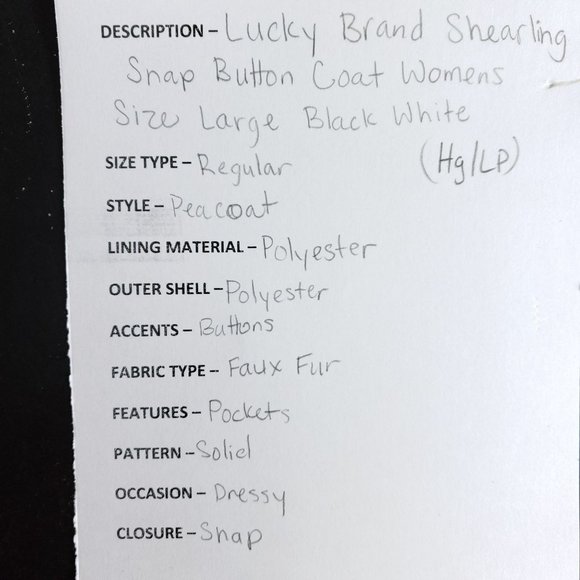 DESCRIPTION – Lucky Brand Shearling
Snap Button Coat Womens
Size Large Black White
SIZE TYPE – Regular (Hg/LP)
STYLE – Peacoat
LINING MATERIAL – Polyester
OUTER SHELL – Polyester
ACCENTS – Buttons
FABRIC TYPE – Faux Fur
FEATURES – Pockets
PATTERN – Solid
OCCASION – Dressy
CLOSURE – Snap